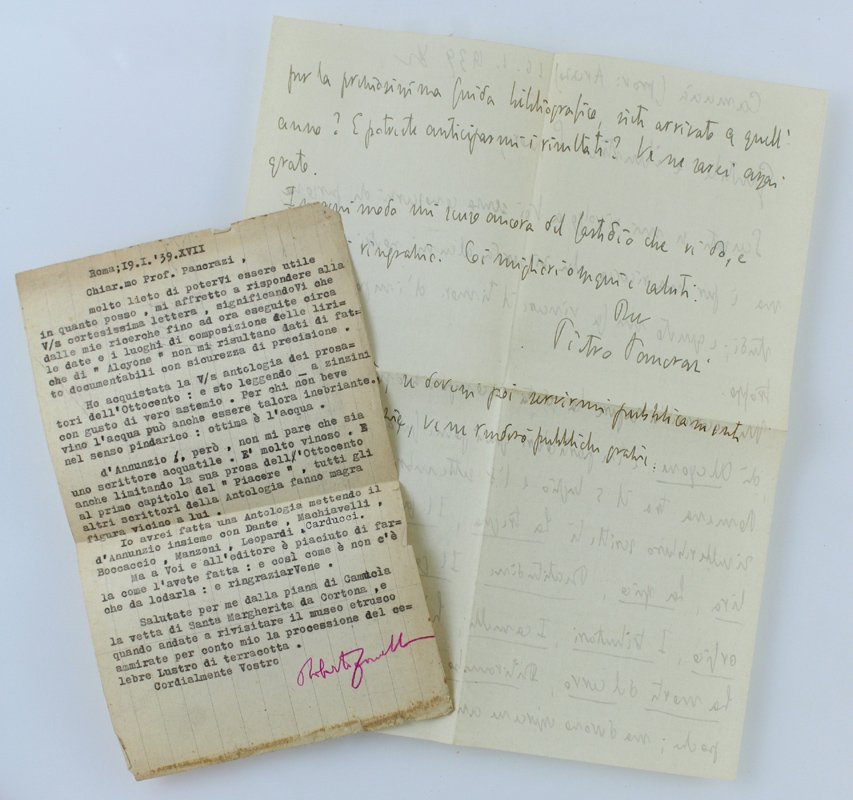 Roma;19.I.'39.XVII
Chiar.mo Prof. Pancrazi ,
molto lieto di poterVi essere utile
in quanto posso , mi affretto a rispondere alla
V/s cortesissima lettera , significandoVi che
dalle mie ricerche fino ad ora eseguite circa
le date e i luoghi di composizione delle liri=
che di " Alcyone " non mi risultano dati di fat=
to documentabili con sicurezza di precisione .
Ho acquistata la V/s Antologia dei prosa=
tori dell'Ottocento : e sto leggendo - a zinzini
con gusto di vero astemio . Per chi non beve
vino l'acqua può anche essere talora inebriante.
nel senso pindarico : ottima è l'acqua .
d'Annunzio , però , non mi pare che sia
uno scrittore acquatile . E' molto vinoso . E
anche limitando la sua prosa dell'Ottocento
al primo capitolo del " Piacere " , tutti gli
altri scrittori della Antologia fanno magra
figura vicino a lui .
Io avrei fatta una Antologia mettendo il
d'Annunzio insieme con Dante , Machiavelli ,
Boccaccio , Manzoni , Leopardi ,Carducci.
Ma a Voi e all'editore è piaciuto di far=
la come l'avete fatta : e così come è non c'è
che da lodarla : e ringraziarVene .
Salutate per me dalla piana di Camucia
la vetta di Santa Margherita da Cortona ,e
quando andate a rivisitare il museo etrusco
ammirate per conto mio la processione del ce=
lebre Lustro di terracotta .
Cordialmente Vostro
Roberto
per la preziosissima Guida bibliografica, siete arrivato a quell'
anno? E potreste anticiparmi i risultati? Ve ne sarei assai
grato.
In ogni modo mi scuso ancora del fastidio che vi do, e
ringrazio. Coi migliori ossequi e saluti.
Pietro Pancrazi
dovessi poi servirmi pubblicamente
ve ne renderò pubbliche grazie.